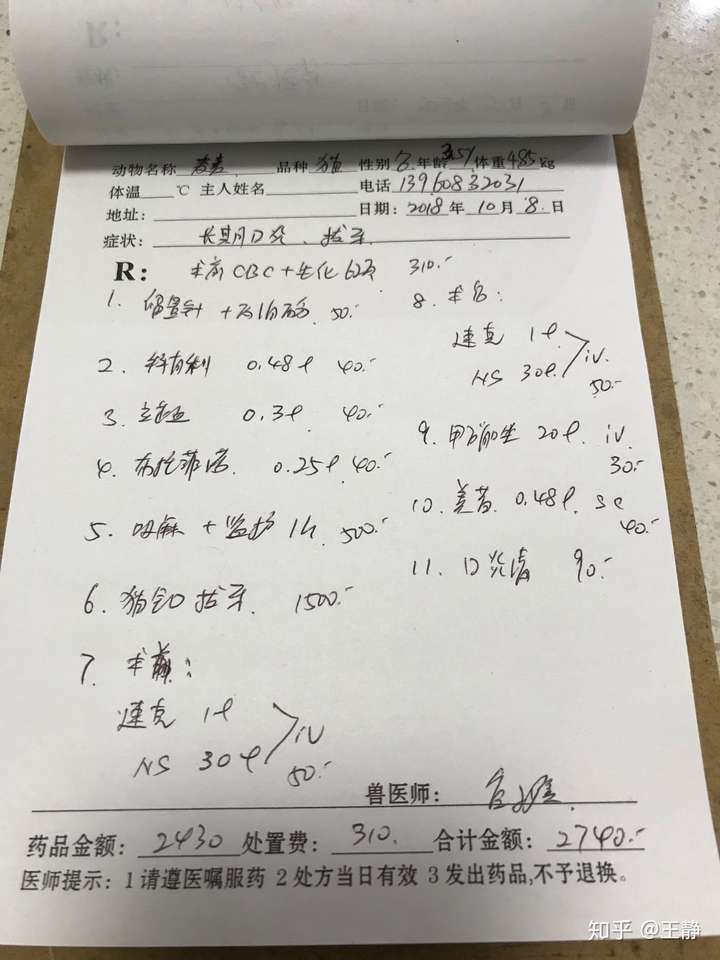 动物名称 麦麦 品种 猫 性别 年龄 3.5Y 体重 4.85 kg
体温 ℃ 主人姓名 电话 13960832031
地址: 日期: 2018 年 10 月 8 日
症状: 长期口炎、拔牙
R: 术前CBC+生化 310.-
1. 留置针 + 50.-
2. 0.48 40.-
3. 0.3 40.-
4. 布托菲诺 0.25 40.-
5. 吸麻 + 监护 1h 500.-
6. 猫全口拔牙. 1500.-
7. 术前:
速克 1
NS 30 iv
50.-
8. 术后:
速克 1
NS 30 iv.
50.-
9. 甲硝唑 20 iv.
30.-
10. 美昔 0.48 sc
40.-
11. 口炎清 90.-
兽医师:
药品金额: 2430 处置费: 310. 合计金额: 2740.-
医师提示: 1请遵医嘱服药 2处方当日有效 3发出药品,不予退换。
知乎 @王静